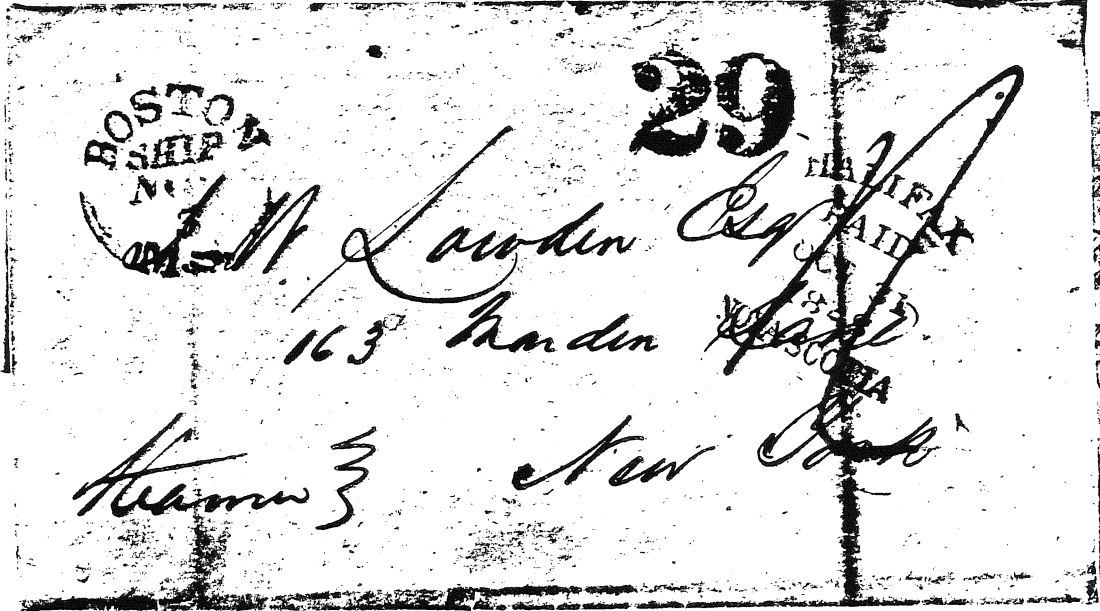 29
BOSTON
SHIP
HALIFAX
PAID
NOVA SCOTIA
W. Lawden Esqr
163 Marden Lane
New York
Steamer